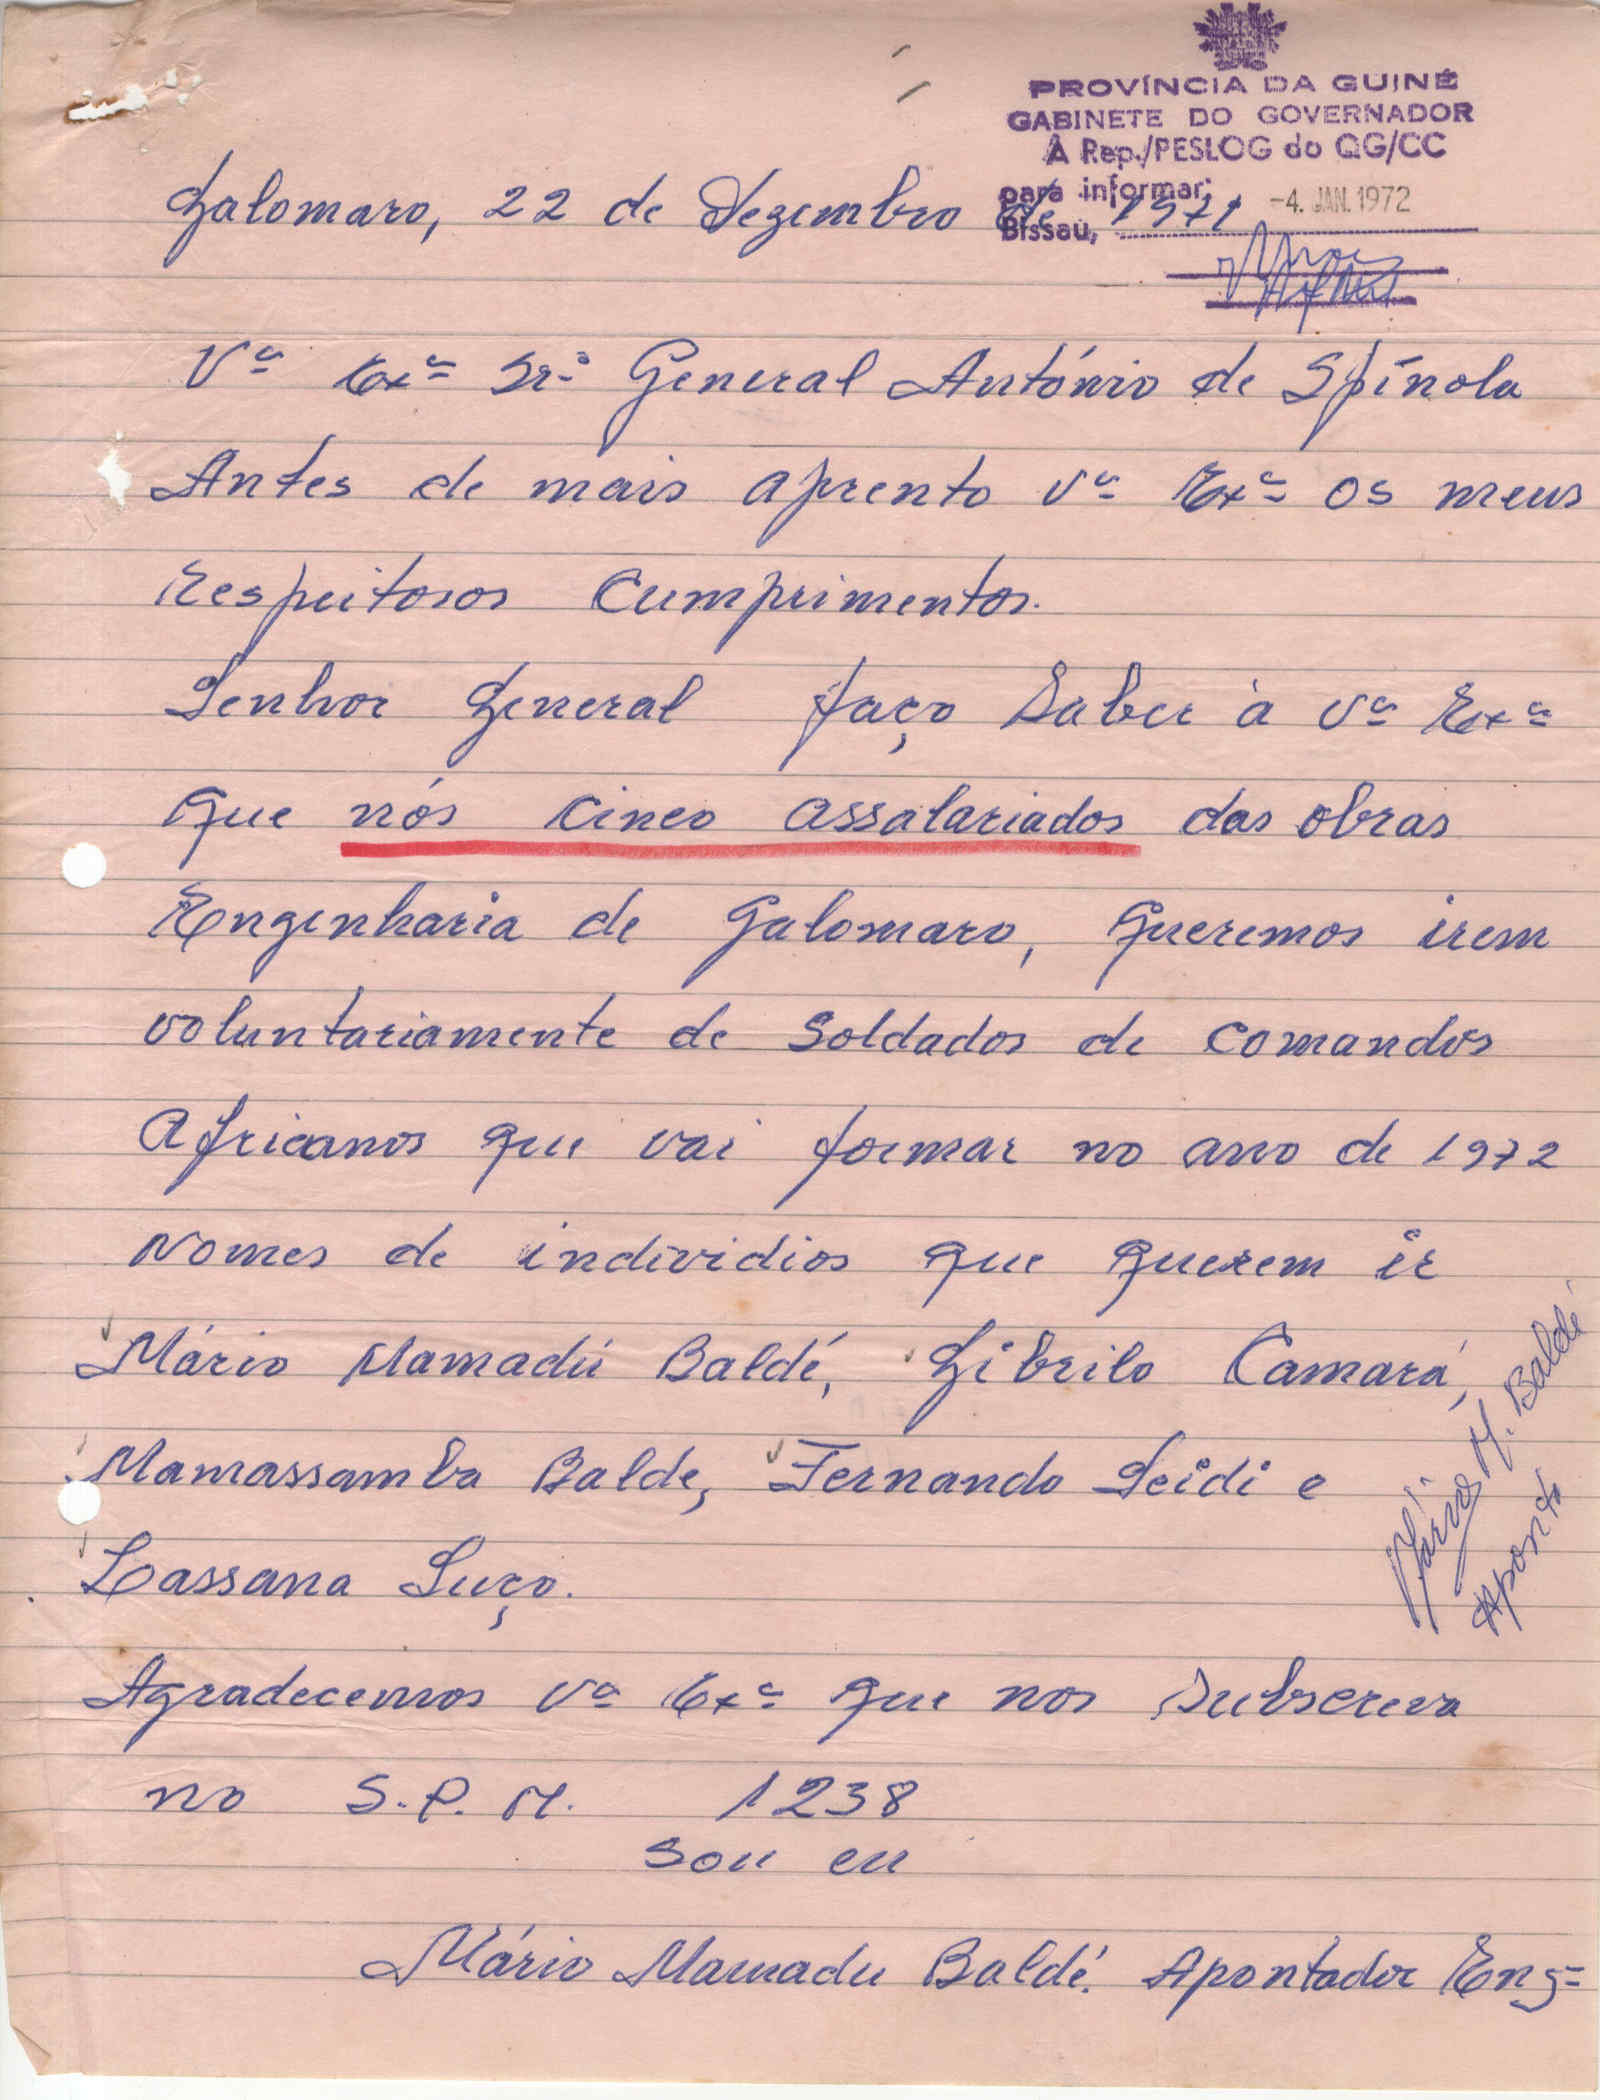 PROVÍNCIA DA GUINÉ
GABINETE DO GOVERNADOR
À Rep./PESLOG do QG/CC
para informar.
Bissau, -4. JAN. 1972
Galomaro, 22 de Dezembro de 1971
Vª Exª Sr.º General António de Spínola
Antes de mais aprento Vª Exª os meus
respeitosos Cumprimentos.
Senhor General faço Saber à Vª Exª
que nós cinco assalariados das obras
Engenharia de Galomaro, queremos irem
voluntariamente de Soldados de comandos
Africanos que vai formar no ano de 1972
Nomes de individios que querem ir
Mário Mamadú Baldé, Gibrilo Camará,
Mamassamba Balde, Fernando Seidi e
Lassana Suço.
Agradecemos Vª Exª que nos subscreva
no S.P.M. 1238
Sou eu
Mário Mamadu Baldé. Apontador Engª
Mário M. Baldé
Aponto